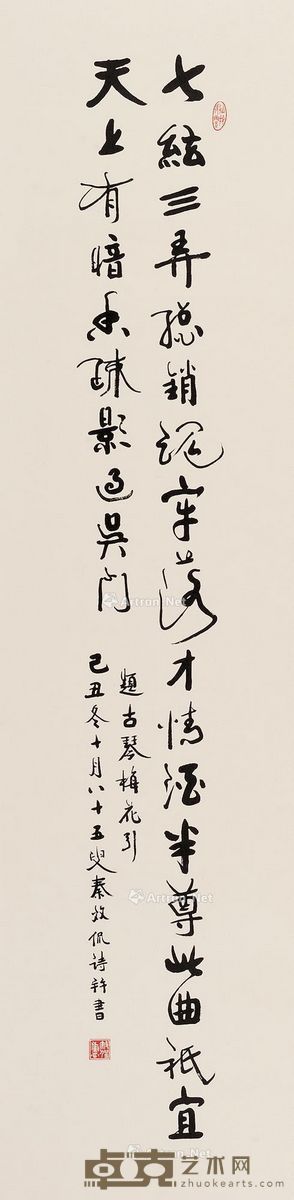 七絃三弄總銷魂牢落才情酒半尊此曲祇宜
天上有暗香疎影過吳門
題古琴梅花引
己丑冬十月八十五叟秦效侃詩并書
Artron.Net
卓克艺术网
www.zhuokearts.com